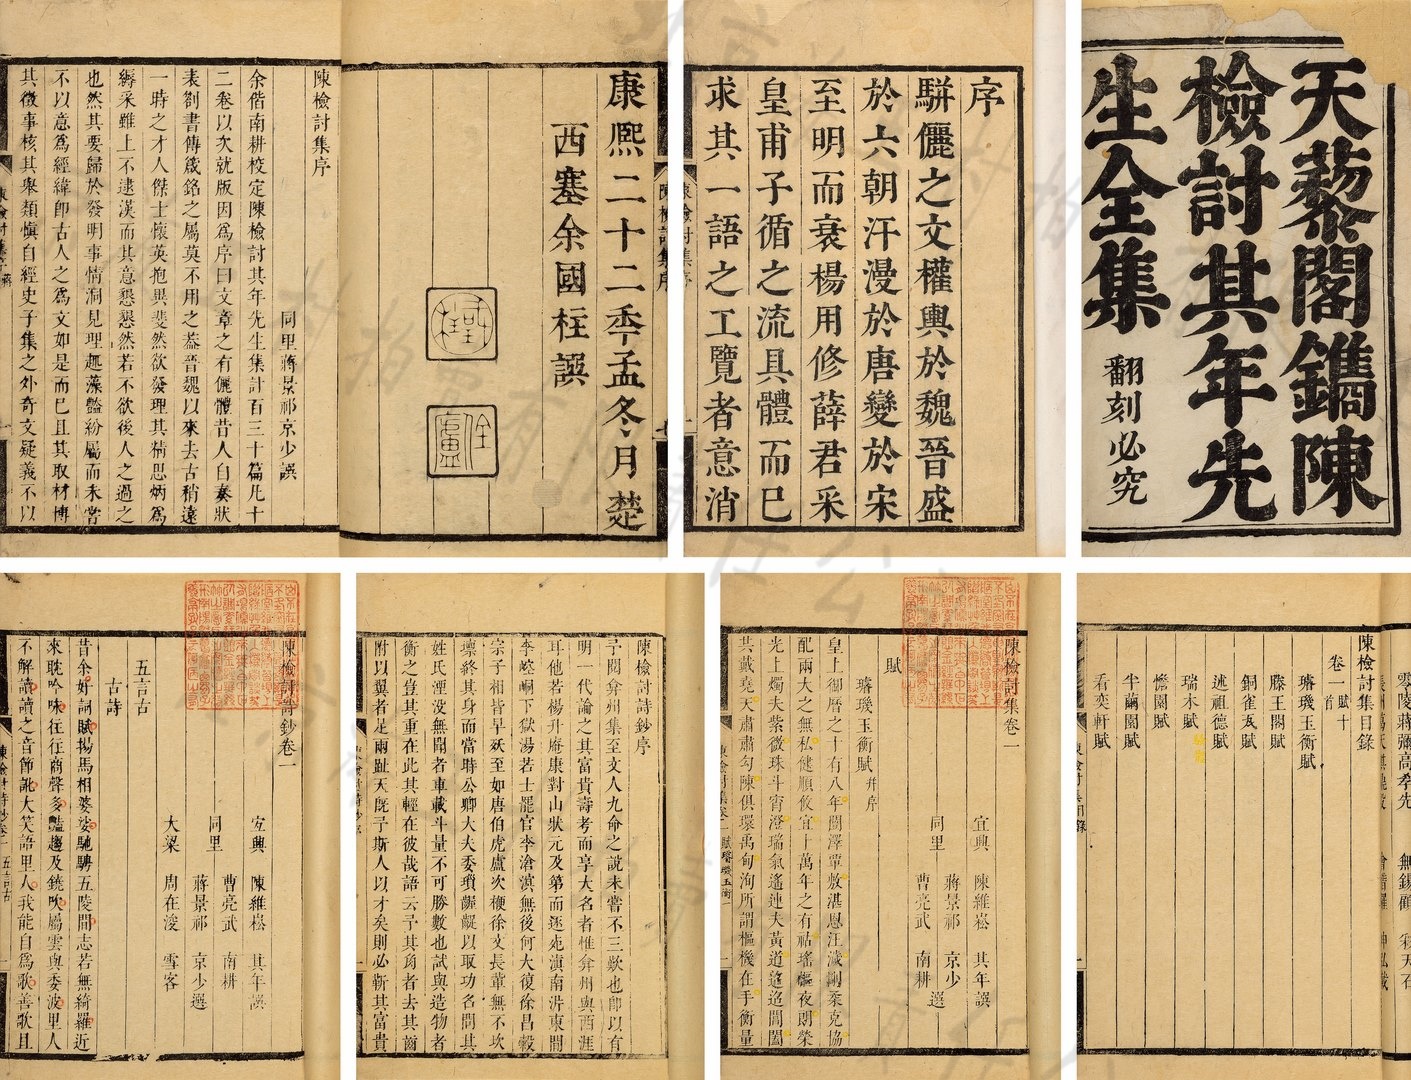 天藜閣鐫陳
檢討其年先
生全集
翻刻必究
序
駢儷之文權輿於魏晉盛
於六朝汗漫於唐變於宋
至明而衰楊用修薛君采
皇甫子循之流具體而已
求其一語之工覽者意消
康熙二十二季孟冬月楚
西塞余國柱譔
陳檢討集序
同里蔣景祁京少譔
余偕南耕校定陳檢討其年先生集計百三十篇凡十
二卷以次就版因為序曰文章之有儷體昔人自奏狀
表劄書傳箴銘之屬莫不用之葢晉魏以來去古稍遠
一時之才人傑士懷英抱異斐然欲發理其精思炳為
縟采雖上不逮漢而其意懇懇然若不欲後人之過之
也然其要歸於發明事情洞見理趣藻豔紛屬而未嘗
不以意為經緯卽古人之為文如是而已且其取材博
其徵事核其舉類愼自經史子集之外奇文疑義不以
零陵蔣彌高孝先
陳檢討集目錄
卷一 賦十首
璿璣玉衡賦
滕王閣賦
銅雀瓦賦
述祖德賦
瑞木賦
憺園賦
半繭園賦
看奕軒賦
陳檢討集卷一
宜興 陳維崧 其年譔
同里 蔣景祁 京少
曹亮武 南耕 選
賦
璿璣玉衡賦 幷序
皇上御曆之十有八年闓澤覃敷湛恩汪濊剛柔克協
配兩大之無私健順攸宜十萬年之有祜瑤樞夜朗榮
光上燭夫紫微珠斗宵澄瑞氣遙連夫黃道遂迢閶闔
共戴堯天肅肅勾陳俱環禹甸洵所謂樞機在手衡量
陳檢討詩鈔序
予閱弇州集至文人九命之說未嘗不三歎也卽以有
明一代論之其富貴壽考而享大名者惟弇州與西涯
耳他若楊升庵康對山狀元及第而逐死滇南沂東間
李崆峒下獄湯若士罷官李滄溟無後何大復徐昌穀
宗子相皆早殀至如唐伯虎盧次楩徐文長輩無不坎
壈終其身而當時公卿大夫委瑣齷齪以取功名問其
姓氏湮沒無聞者車載斗量不可勝數也試與造物者
衡之豈其重在此其輕在彼哉語云予其角者去其齒
附以翼者兩趾天旣予斯人以才矣則必靳其富貴
陳檢討詩鈔卷一
宜興 陳維崧 其年譔
曹亮武 南耕
同里
蔣景祁 京少選
大梁 周在浚 雪客
五言古
古詩
昔余好詞賦揚馬相婆娑馳騁五陵間志若無綺羅近
來耽吟味往往商聲多豔趨及鐃吹屬雲與委波里人
不解讀讀之音節訛大笑語里人我能自為歌善歌且